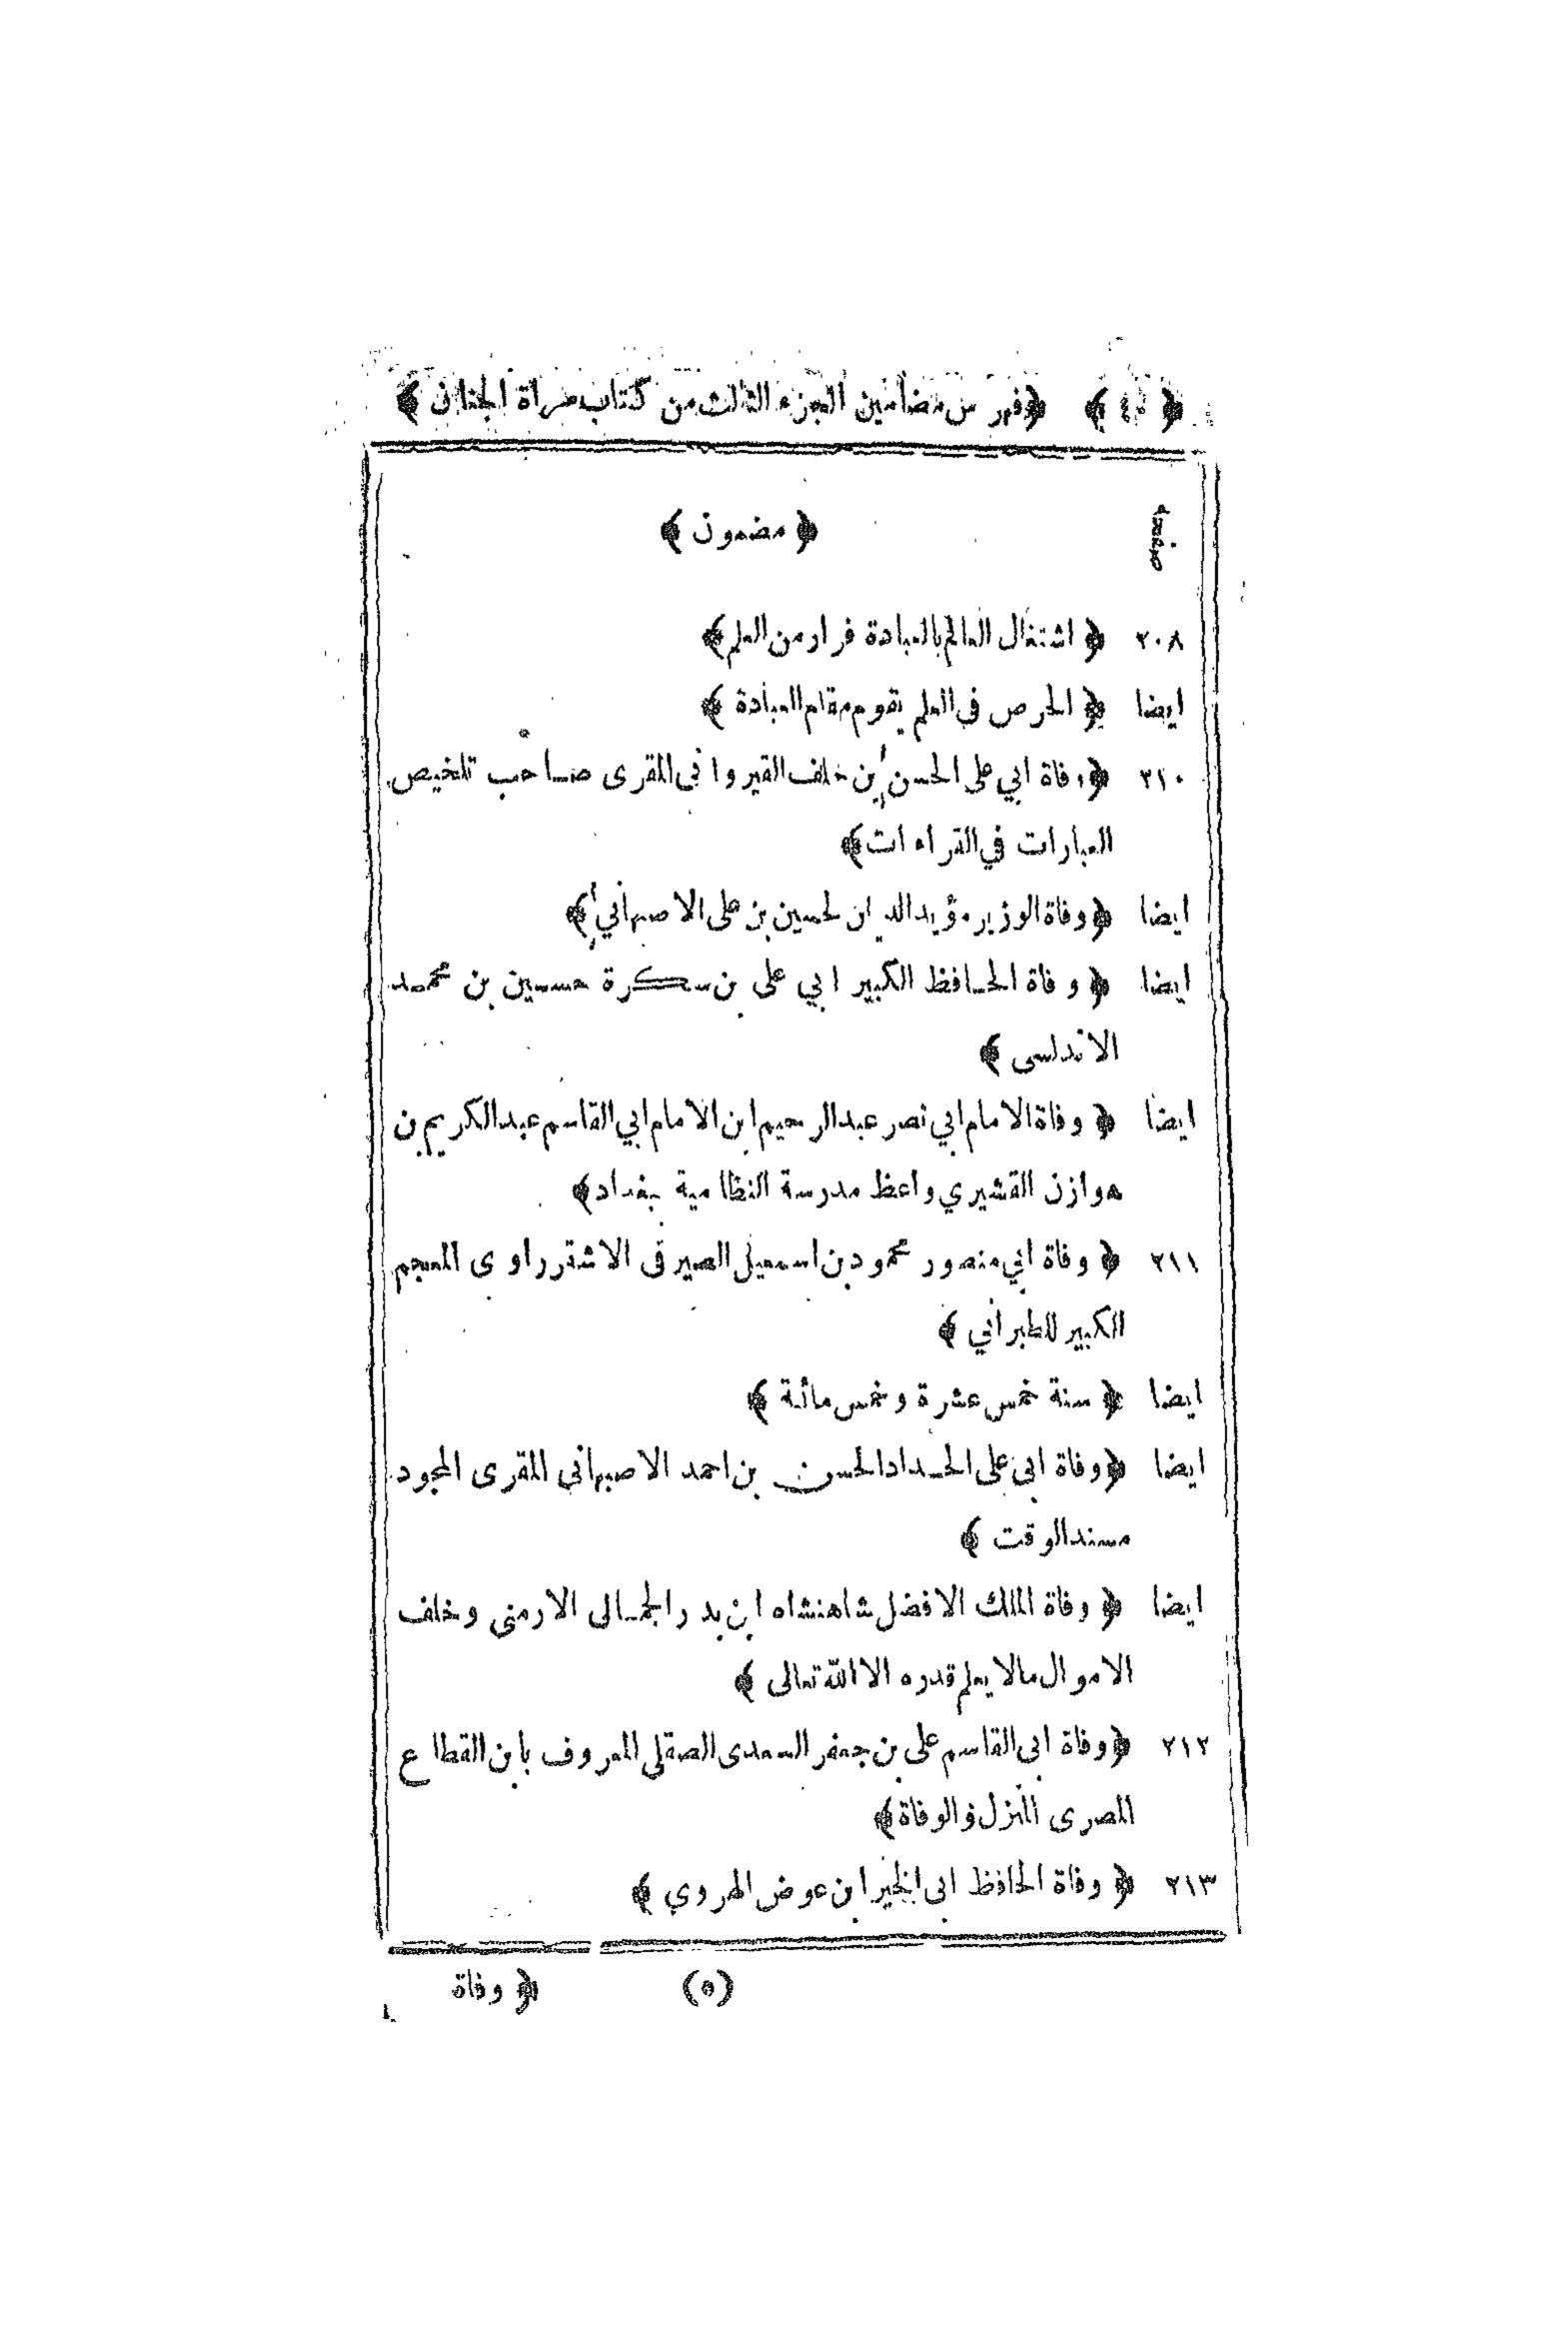 ﴿ ٤٠ ﴾ ﴿ فهرس مضامين الجزء الثالث من كتاب مرأة الجنان ﴾
صفحه ﴿ مضمون ﴾
٢٠٨ ﴿ اشتغال العالم بالعبادة فرار من العلم ﴾
ايضا ﴿ الحرص في العلم يقوم مقام العبادة ﴾
٢١٠ ﴿ وفاة ابي على الحسن بن خلف القيروانى المقرى صاحب تلخيص
العبارات في القراءات ﴾
ايضا ﴿ وفاة الوزير مؤيد الدين لحسين بن على الاصبهاني ﴾
ايضا ﴿ وفاة الحافظ الكبير ابي على بن سكرة حسين بن محمد
الاندلسى ﴾
ايضا ﴿ وفاة الامام ابي نصر عبد الرحيم ابن الامام ابي القاسم عبد الكريم بن
هوازن القشيري واعظ مدرسة النظامية ببغداد ﴾
٢١١ ﴿ وفاة ابي منصور محمود بن اسمعيل الصيرفى الاشقر راوى المعجم
الكبير للطبراني ﴾
ايضا ﴿ سنة خمس عشرة وخمس مائة ﴾
ايضا ﴿ وفاة ابى على الحداد الحسن بن احمد الاصبهانى المقرى المجود
مسند الوقت ﴾
ايضا ﴿ وفاة الملك الافضل شاهنشاه ابن بدر الجمالى الارمنى وخلف
الاموال مالا يعلم قدره الا الله تعالى ﴾
٢١٢ ﴿ وفاة ابى القاسم على بن جعفر السعدى الصقلى المعروف بابن القطاع
المصرى المنزل والوفاة ﴾
٢١٣ ﴿ وفاة الحافظ ابى الخير ابن عوض الهروي ﴾
(٥) ﴿ وفاة